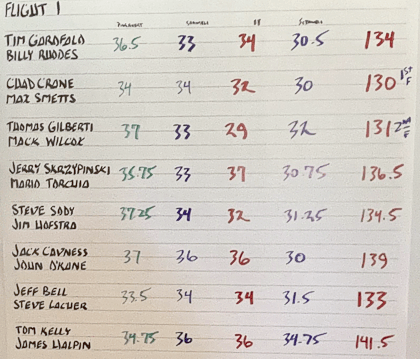 FLIGHT 1
PINEHURST SCRAMBLE BB
TIM GAROFOLO 36.5 33 34 30.5 134
BILLY RHODES
CHAD CRONE 34 34 32 30 130 1ST F
MAX SMETTS
THOMAS GILBERTI 37 33 29 32 131 2ND F
MACK WILCOX
JERRY SKRZYPINSKI 35.75 33 37 30.75 136.5
MARIO TORCHIO
STEVE SODY 37.25 34 32 31.25 134.5
JIM HOFSTRA
JACK CAVNESS 37 36 36 30 139
JOHN O'KANE
JEFF BELL 33.5 34 34 31.5 133
STEVE LACHER
TOM KELLY 34.75 36 36 34.75 141.5
JAMES HALPIN